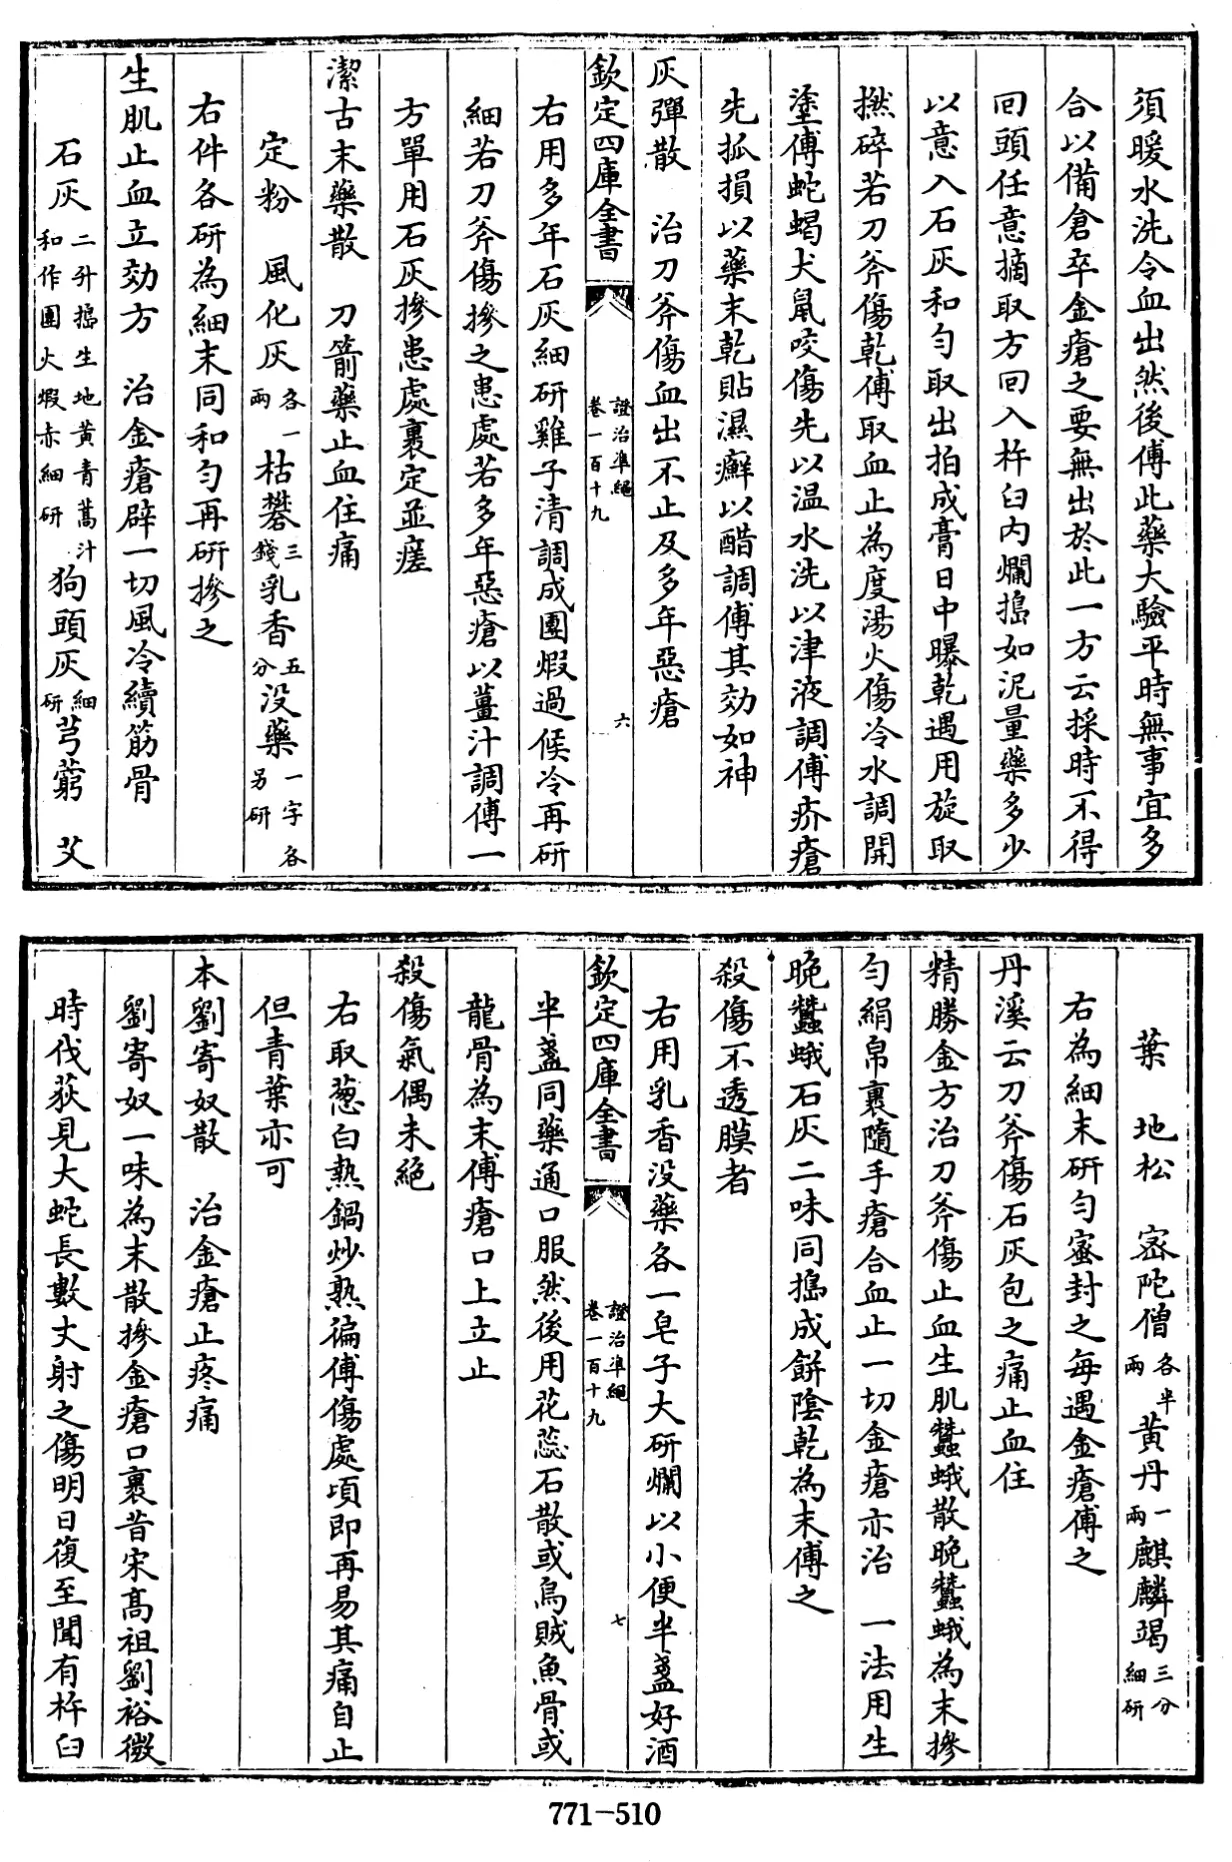 須暖水洗令血出然後傅此藥大驗平時無事宜多
合以備倉卒金瘡之要無出於此一方云採時不得
回頭任意摘取方回入杵臼内爛搗如泥量藥多少
以意入石灰和勻取出拍成膏日中曝乾遇用旋取
撚碎若刀斧傷乾傅取血止為度湯火傷冷水調開
塗傅蛇蝎犬鼠咬傷先以温水洗以津液調傅疥瘡
先抓損以藥末乾貼濕癬以醋調傅其効如神
灰彈散　治刀斧傷血出不止及多年惡瘡
欽定四庫全書　證治準繩　卷一百十九　六
右用多年石灰細研雞子清調成團煆過候冷再研
細若刀斧傷摻之患處若多年惡瘡以薑汁調傅一
方單用石灰摻患處裹定並瘥
潔古末藥散　刀箭藥止血住痛
定粉　風化灰各一兩　枯礬三錢　乳香五分　没藥一字各另研
右件各研為細末同和勻再研摻之
生肌止血立効方　治金瘡辟一切風冷續筋骨
石灰二升搗生地黄青蒿汁和作團火煆赤細研　狗頭灰細研　芎藭　艾
葉　地松　密陀僧各半兩　黄丹一兩　麒麟竭三分細研
右為細末研勻密封之每遇金瘡傅之
丹溪云刀斧傷石灰包之痛止血住
精勝金方治刀斧傷止血生肌蠶蛾散晚蠶蛾為末摻
勻絹帛裹隨手瘡合血止一切金瘡亦治　一法用生
晚蠶蛾石灰二味同搗成餅陰乾為末傅之
殺傷不透膜者
右用乳香没藥各一皂子大研爛以小便半盞好酒
欽定四庫全書　證治準繩　卷一百十九　七
半盞同藥通口服然後用花蕊石散或烏賊魚骨或
龍骨為末傅瘡口上立止
殺傷氣偶未絶
右取葱白熱鍋炒熟徧傅傷處頃即再易其痛自止
但青葉亦可
本劉寄奴散　治金瘡止疼痛
劉寄奴一味為末散摻金瘡口裹昔宋髙祖劉裕微
時伐荻見大蛇長數丈射之傷明日復至聞有杵臼
771-510